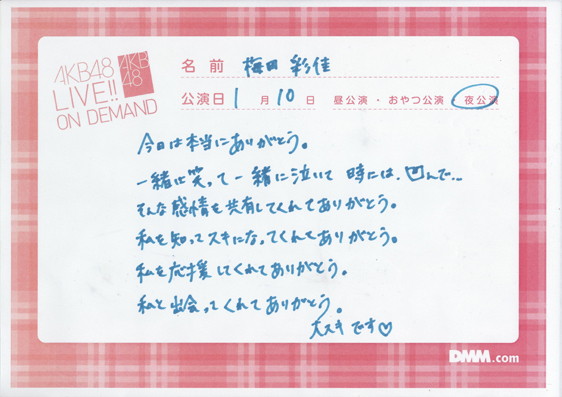 AKB48
LIVE!!
ON DEMAND
AKB
48
名前 梅田 彩佳
公演日 1月10日 昼公演・おやつ公演・夜公演
今日は本当にありがとう。
一緒に笑って一緒に泣いて 時には、凹んで…
そんな感情を共有してくれてありがとう。
私を知ってスキになってくれてありがとう。
私を応援してくれてありがとう。
私と出会ってくれてありがとう。
大スキです♡
DMM.com